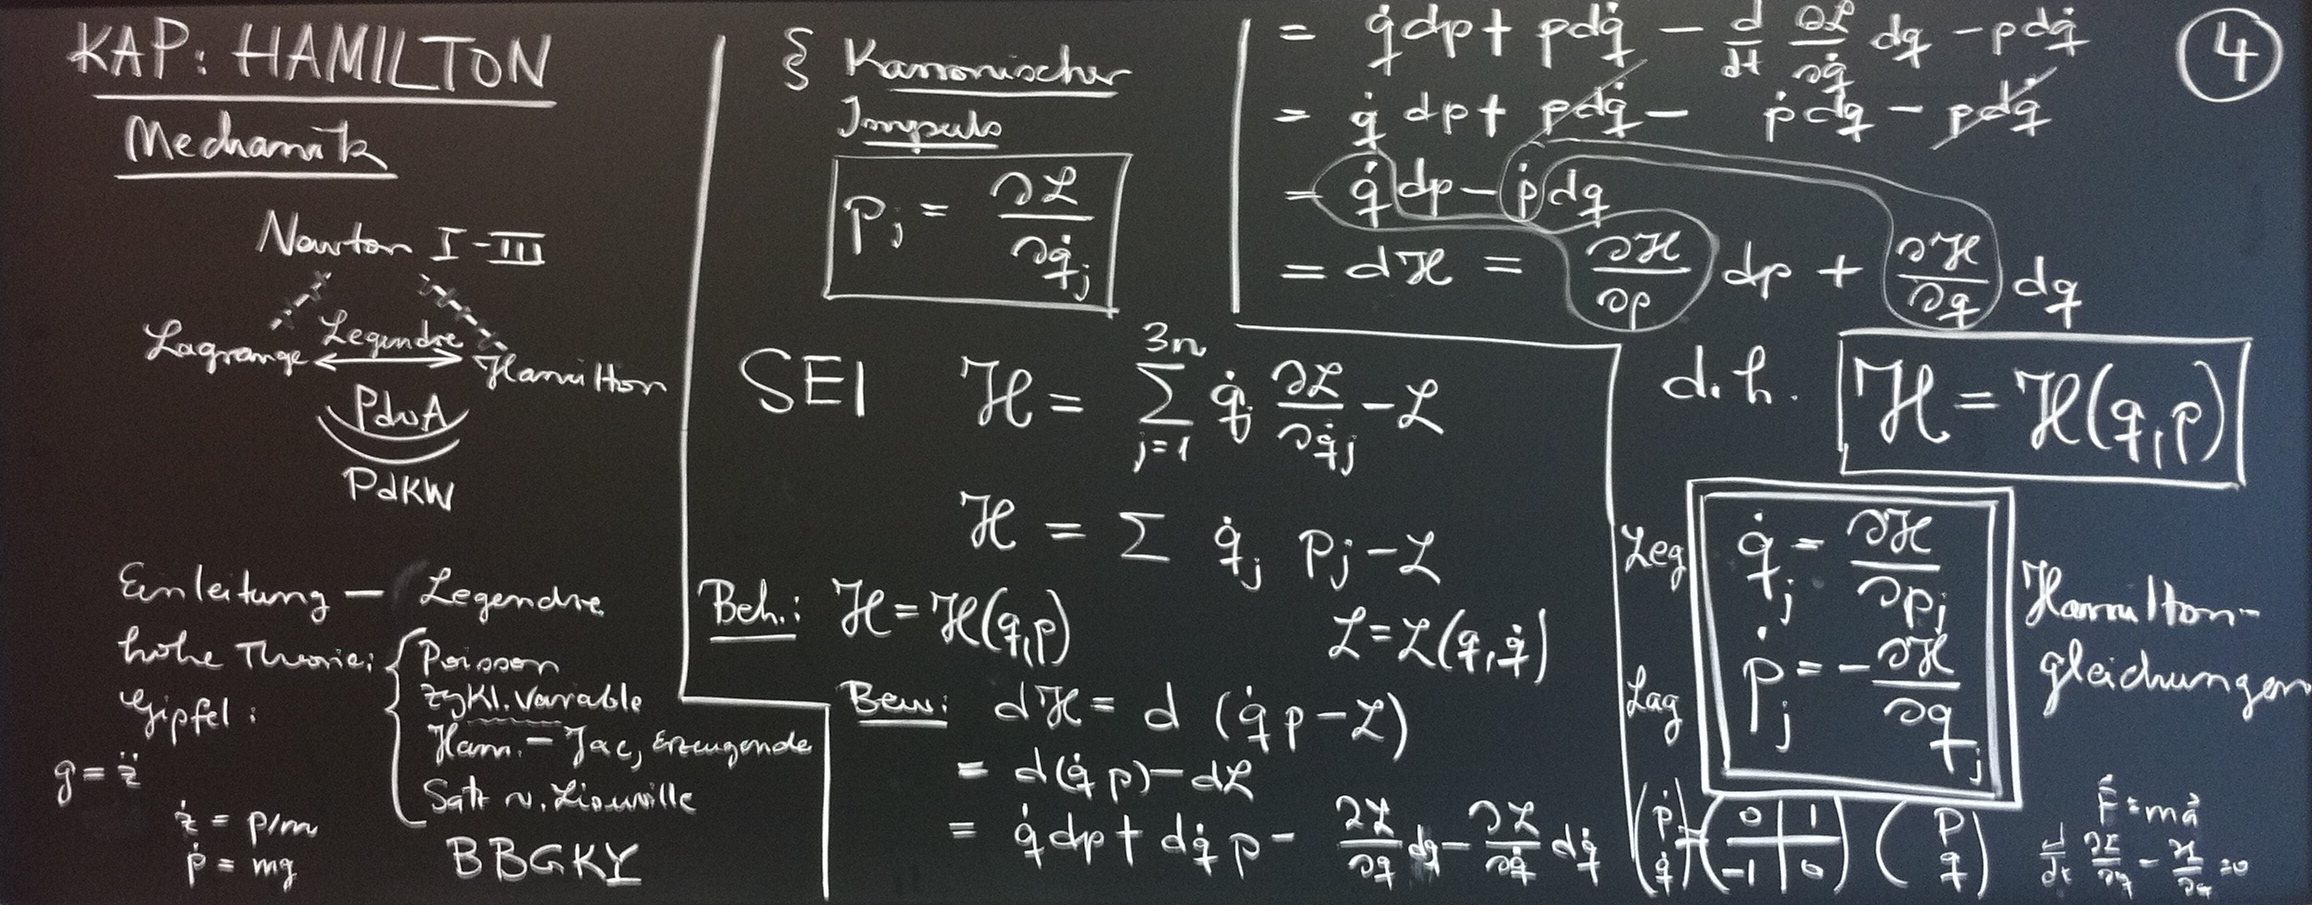 KAP: HAMILTON
Mechanik
Newton I-III
Lagrange
Legendre
Hamilton
PdvA
PdKW
Einleitung — Legendre
hohe Theorie:
Gipfel:
Poisson
zykl. Variable
Ham.-Jac, Erzeugende
Satz v. Liouville
BBGKY
g = z̈
ż = p/m
ṗ = mg
§ Kanonischer
Impuls
p_j = ∂ℒ/∂q̇_j
SEI ℋ = ∑_{j=1}^{3n} q̇_j ∂ℒ/∂q̇_j - ℒ
ℋ = ∑ q̇_j p_j - ℒ
Beh.: ℋ = ℋ(q,p)
ℒ = ℒ(q,q̇)
Bew: dℋ = d (q̇p - ℒ)
= d(q̇p) - dℒ
= q̇dp + dq̇ p - ∂ℒ/∂q dq - ∂ℒ/∂q̇ dq̇
= q̇dp + pdq̇ - d/dt ∂ℒ/∂q̇ dq - pdq̇
= q̇ dp + pdq̇ - ṗdq - pdq̇
= q̇ dp - ṗ dq
= dℋ = ∂ℋ/∂p dp + ∂ℋ/∂q dq
④
d.h. ℋ = ℋ(q,p)
Leg q̇_j = ∂ℋ/∂p_j
Lag ṗ_j = -∂ℋ/∂q_j
Hamilton-
gleichungen
(ṗ q̇) = (0 1 -1 0) (p q)
F⃗ = ma⃗